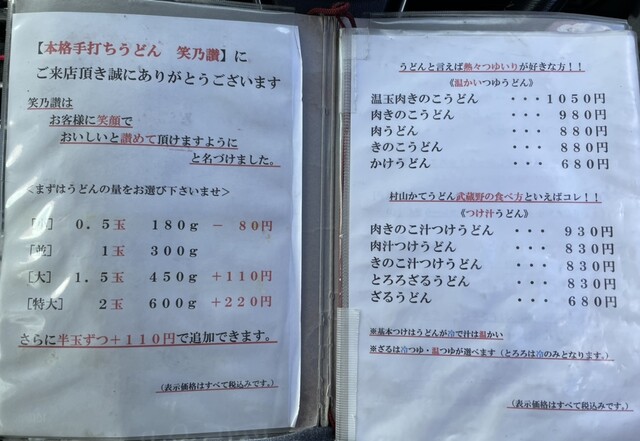 【本格手打ちうどん　笑乃讃】に
ご来店頂き誠にありがとうございます
笑乃讃は
お客様に笑顔で
おいしいと讃めて頂けますように
と名づけました。
<まずはうどんの量をお選び下さいませ>
[小]　0.5玉　180g　－80円
[並]　1玉　300g
[大]　1.5玉　450g　＋110円
[特大]　2玉　600g　＋220円
さらに半玉ずつ＋110円で追加できます。
（表示価格はすべて税込みです。）
うどんと言えば熱々つゆいりが好きな方！！
《温かいつゆうどん》
温玉肉きのこうどん　・・・1050円
肉きのこうどん　・・・980円
肉うどん　・・・880円
きのこうどん　・・・880円
かけうどん　・・・680円
村山かてうどん武蔵野の食べ方といえばコレ！！
《つけ汁うどん》
肉きのこ汁つけうどん　・・・930円
肉汁つけうどん　・・・830円
きのこ汁つけうどん　・・・830円
とろろざるうどん　・・・830円
ざるうどん　・・・680円
※基本つけはうどんが冷で汁は温かい
※ざるは冷つゆ・温つゆが選べます（とろろは冷のみとなります。）
（表示価格はすべて税込みです。）